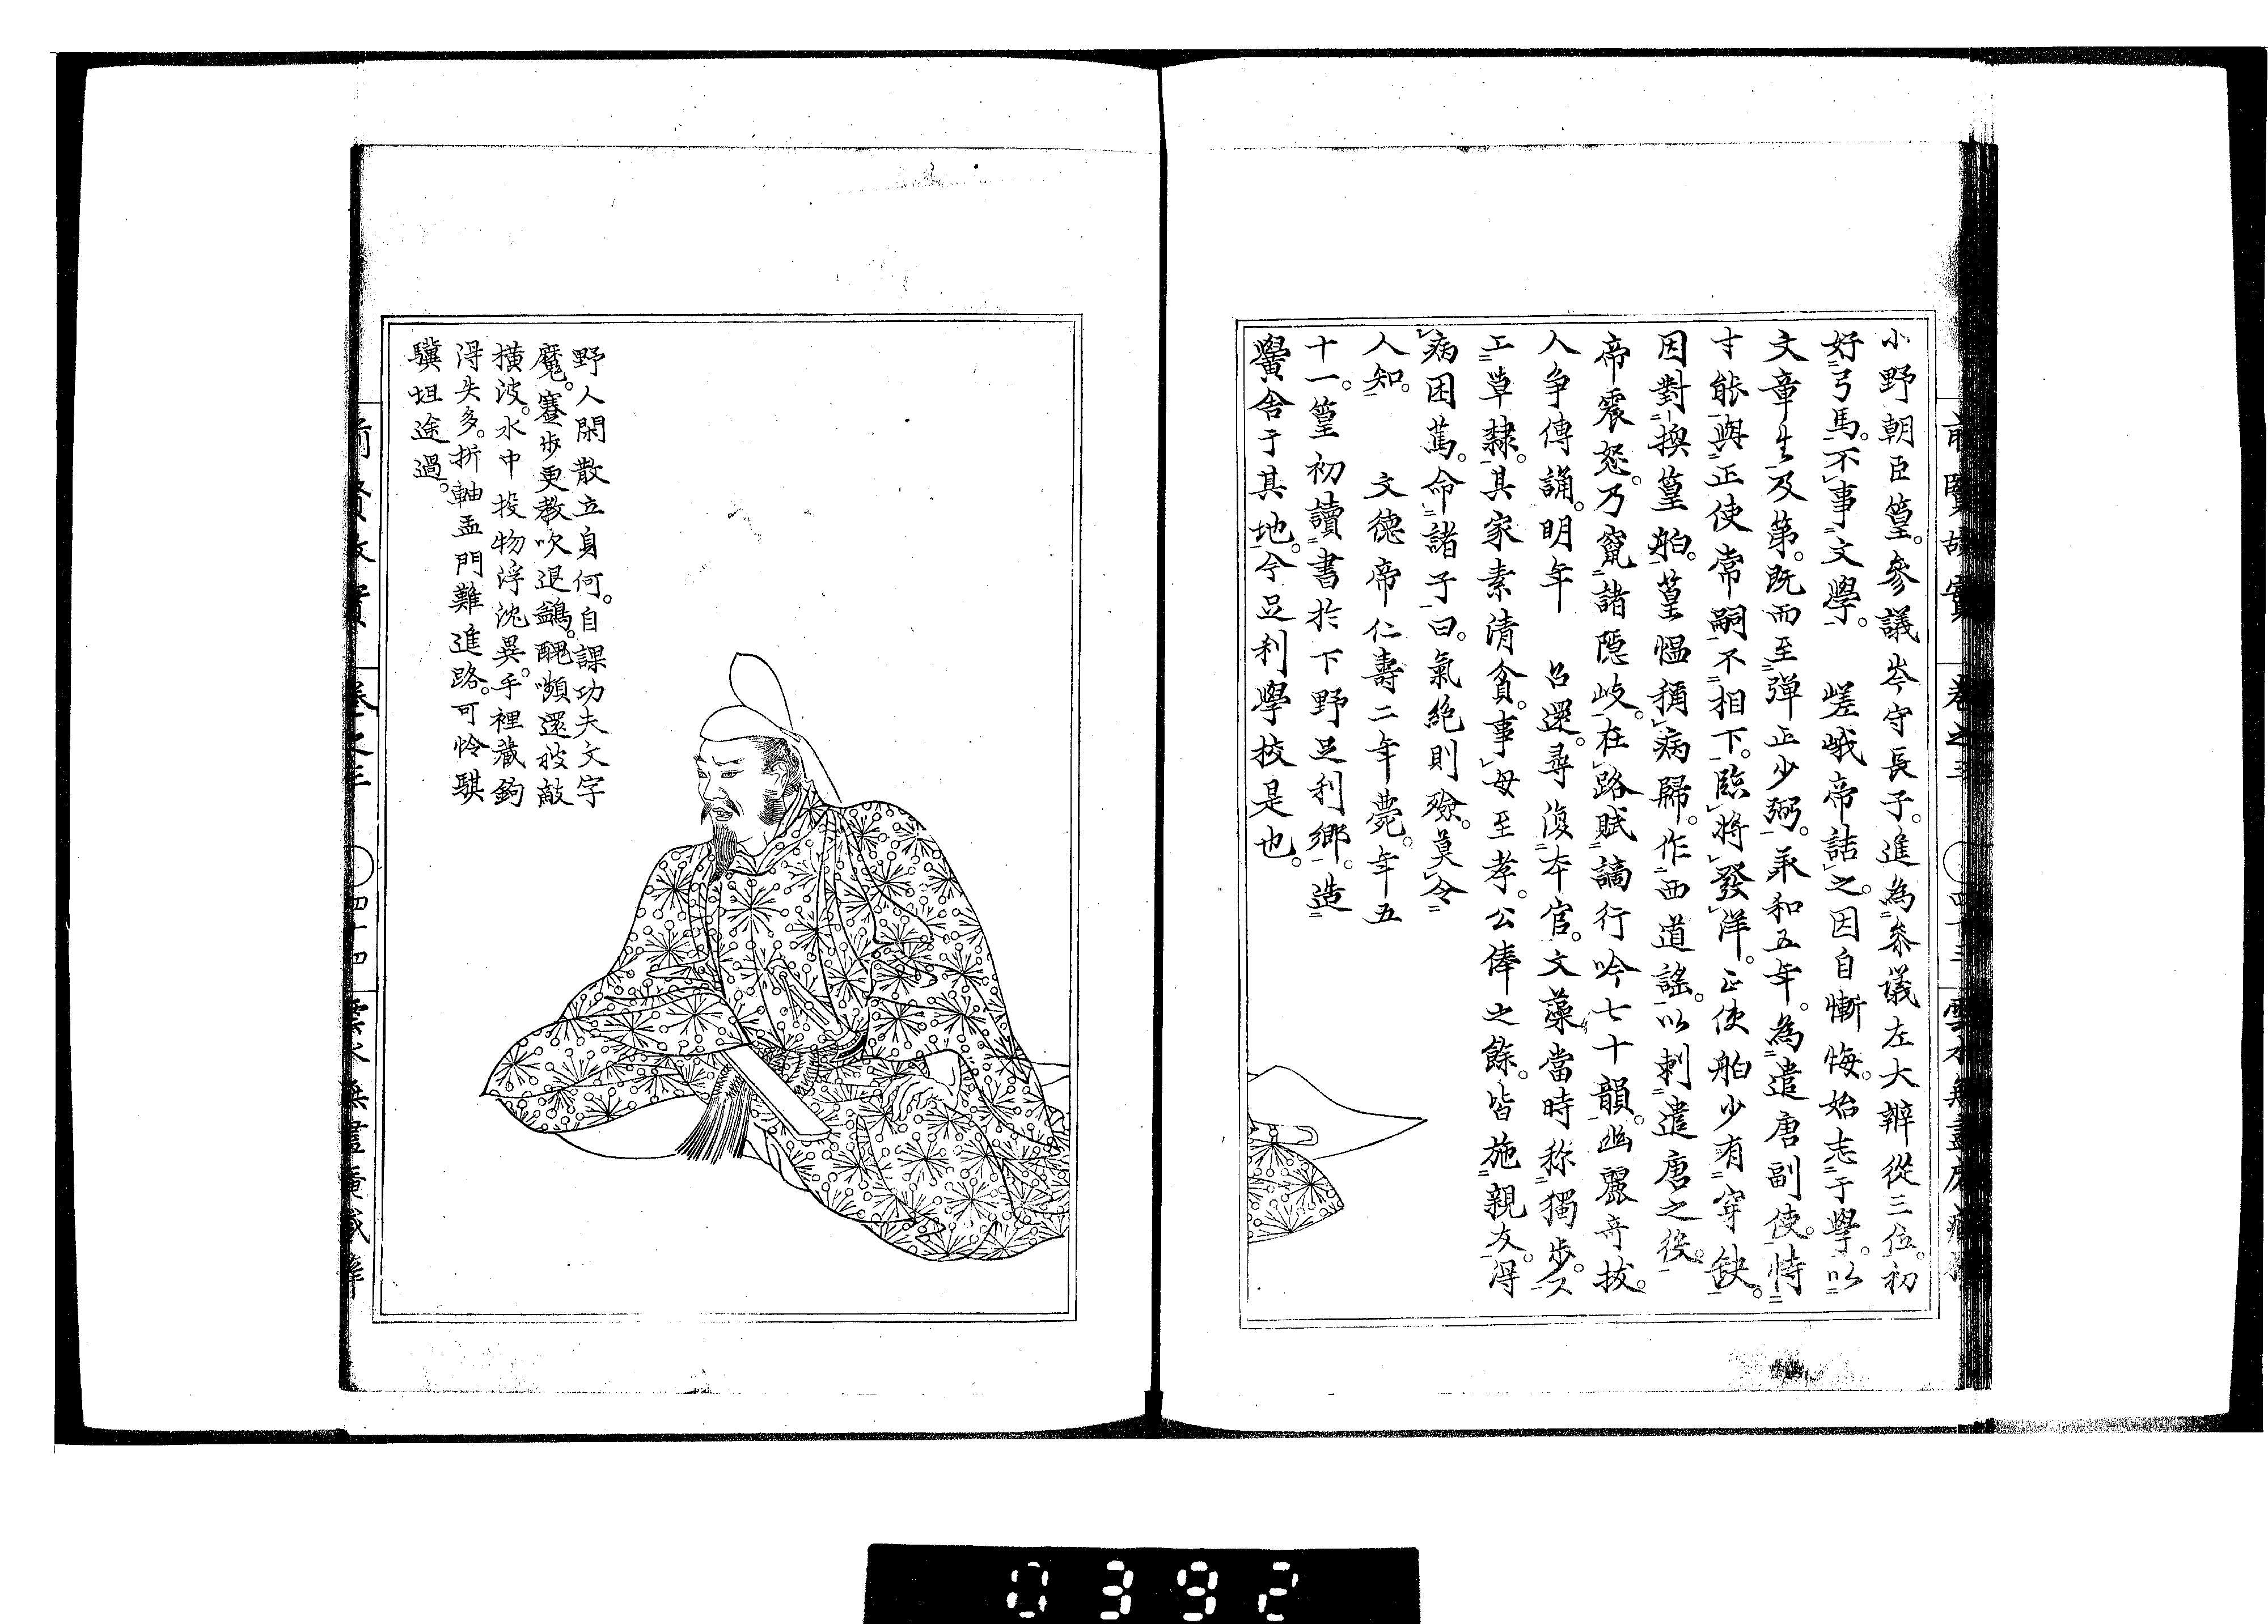 小野朝臣篁。參議岑守長子。進為参議左大辨從三位。初
好弓馬。不事文學。 嵯峨帝詰之。因自慚悔。始志于學。以
文章生及第。既而至彈正少弼。承和五年。為遣唐副使。恃
才能與正使常嗣不相下。臨將發洋。正使舶少有穿缺。
因對換篁舶。篁愠稱病歸。作西道謠。以刺遣唐之役。
帝震怒。乃竄諸隱岐。在路賦謫行吟七十韻。幽麗奇拔。
人爭傳誦。明年 召還。尋復本官。文藻當時称獨歩。又
工草隸。其家素清貧。事母至孝。公俸之餘。皆施親友。得
病困篤。命諸子曰。氣絶則殮。莫令
人知。 文德帝仁壽二年薨。年五
十一。篁初讀書於下野足利鄉。造
黌舍于其地。今足利學校是也。
前賢故實 卷之三 四十三
野人閑散立身何。自課功夫文字
魔。蹇歩更教吹退鷁。醜嚬還被敵
横波。水中投物浮沈異。手裡藏鉤
得失多。折軸孟門難進路。可怜騏
驥坦途過。
前賢故實 卷之三 四十四
0392